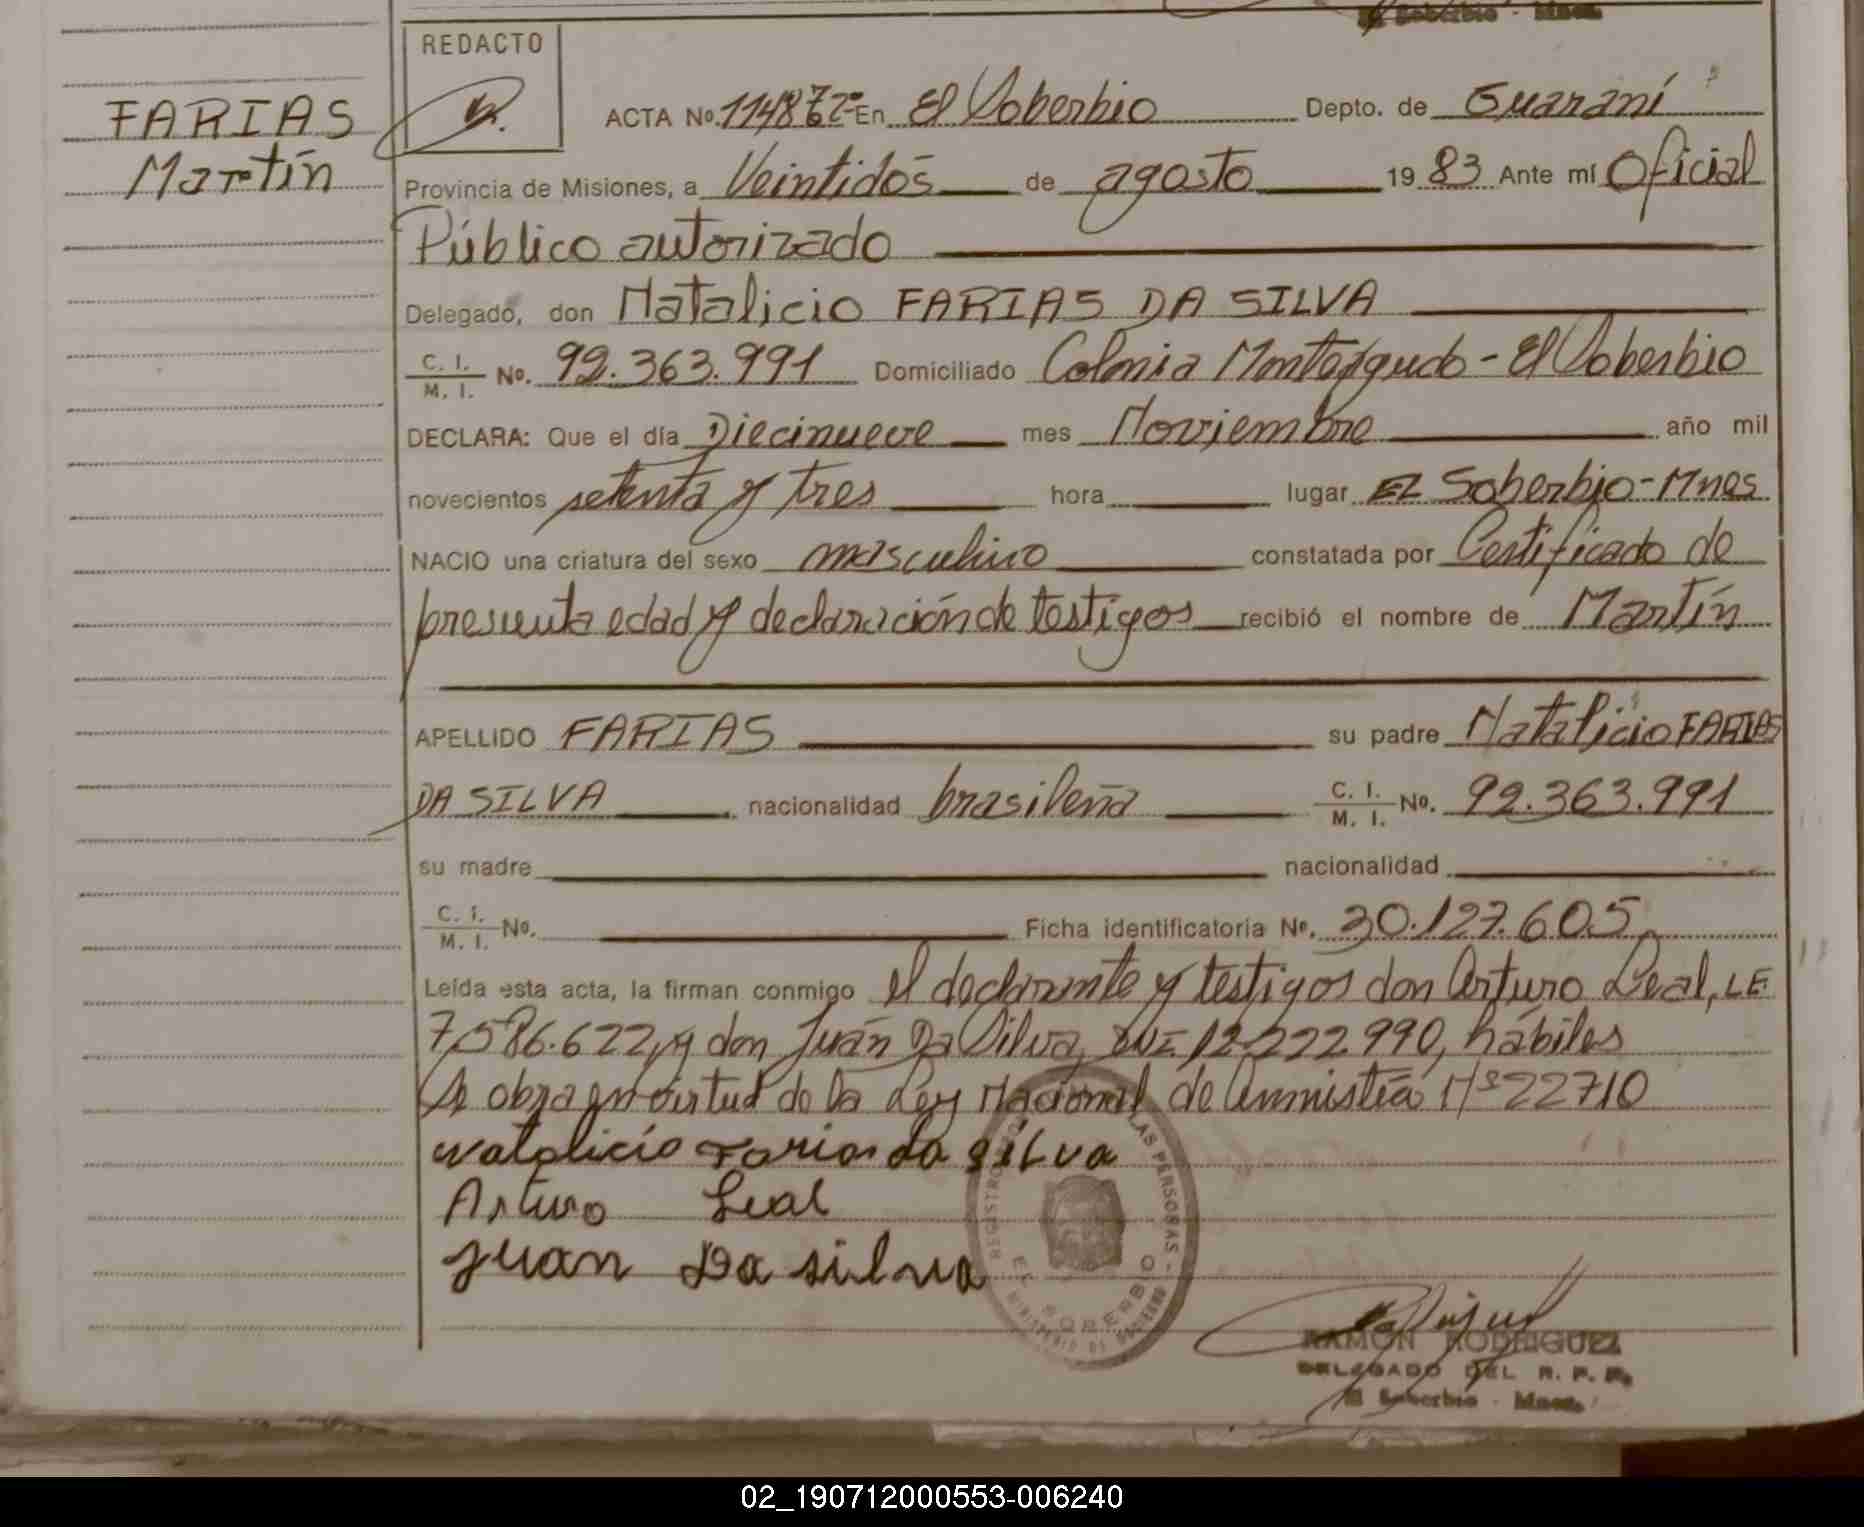 El Soberbio - Mnes.
REDACTO
FARIAS
Martín
ACTA No. En El Soberbio Depto. de Guaraní
Provincia de Misiones, a Veintidós de agosto 19 83 Ante mí Oficial
Público autorizado
Delegado, don Natalicio FARIAS DA SILVA
C. I. / M. I. No. 92.363.991 Domiciliado Colonia Monteagudo - El Soberbio
DECLARA: Que el día Diecinueve mes Noviembre año mil
novecientos setenta y tres hora lugar El Soberbio - Mnes
NACIO una criatura del sexo masculino constatada por Certificado de
presunta edad y declaración de testigos recibió el nombre de Martín
APELLIDO FARIAS su padre Natalicio FARIAS
DA SILVA nacionalidad brasileña C. I. / M. I. No. 92.363.991
su madre nacionalidad
C. I. / M. I. No. Ficha identificatoria No. 30.127.605
Leída esta acta, la firman conmigo el declarante y testigos don Arturo Leal, LE
7.586.622, y don Juán Da Silva, DNI 12.222.990, hábiles
Se obra en virtud de la Ley Nacional de Amnistía Nº 22710
Natalicio Farias da Silva
Arturo Leal
Juan Da silva
REGISTRO LAS PERSONAS
EL SOBERBIO
MINISTERIO DE GOBIERNO
RAMON RODRIGUEZ
DELEGADO DEL R. P. P.
El Soberbio - Mnes.
02_190712000553-006240